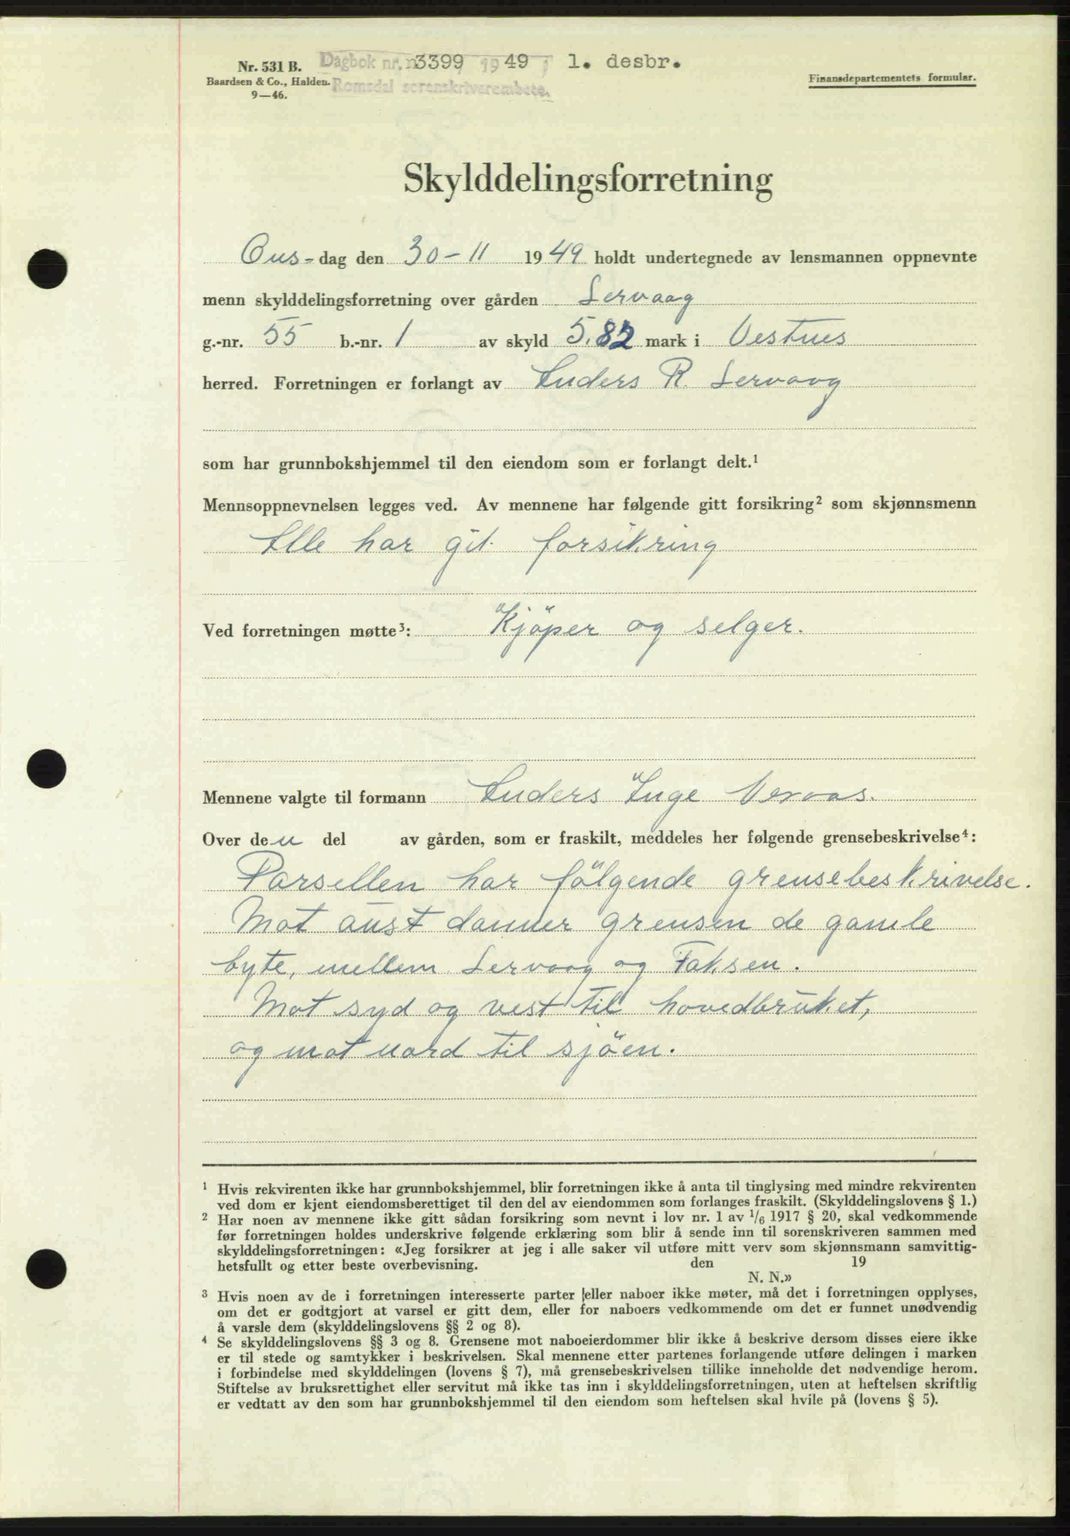 Nr. 531 B.
Baardsen & Co., Halden.
9—46.
Dagbok nr. 3399 1949 1. desbr.
Romsdal sorenskriverembete.
Finansdepartementets formular.
Skylddelingsforretning
Ons-dag den 30-11 1949 holdt undertegnede av lensmannen oppnevnte
menn skylddelingsforretning over gården Lervaag
g.-nr. 55 b.-nr. 1 av skyld 5.82 mark i Vestnes
herred. Forretningen er forlangt av Anders R. Lervaag
som har grunnbokshjemmel til den eiendom som er forlangt delt.¹
Mennsoppnevnelsen legges ved. Av mennene har følgende gitt forsikring² som skjønnsmenn
Alle har git forsikring
Ved forretningen møtte³: Kjöper og selger.
Mennene valgte til formann Anders Inge
Over den del av gården, som er fraskilt, meddeles her følgende grensebeskrivelse⁴:
Parsellen har fölgende grensebeskrivelse.
Mot aust danner grensen de gamle
byte, mellem Lervaag og Faksen.
Mot syd og vest til hovedbruket,
og mot nord til sjöen.
¹ Hvis rekvirenten ikke har grunnbokshjemmel, blir forretningen ikke å anta til tinglysing med mindre rekvirenten
ved dom er kjent eiendomsberettiget til den del av eiendommen som forlanges fraskilt. (Skylddelingslovens § 1.)
² Har noen av mennene ikke gitt sådan forsikring som nevnt i lov nr. 1 av 1/6 1917 § 20, skal vedkommende
før forretningen holdes underskrive følgende erklæring som blir å sende inn til sorenskriveren sammen med
skylddelingsforretningen: «Jeg forsikrer at jeg i alle saker vil utføre mitt verv som skjønnsmann samvittig-
hetsfullt og etter beste overbevisning. den 19
N. N.»
³ Hvis noen av de i forretningen interesserte parter eller naboer ikke møter, må det i forretningen opplyses,
om det er godtgjort at varsel er gitt dem, eller for naboers vedkommende om det er funnet unødvendig
å varsle dem (skylddelingslovens §§ 2 og 8).
⁴ Se skylddelingslovens §§ 3 og 8. Grensene mot naboeierdommer blir ikke å beskrive dersom disses eiere ikke
er til stede og samtykker i beskrivelsen. Skal mennene etter partenes forlangende utføre delingen i marken
i forbindelse med skylddelingen (lovens § 7), må grensebeskrivelsen tillike inneholde det nødvendige herom.
Stiftelse av bruksrettighet eller servitut må ikke tas inn i skylddelingsforretningen, uten at heftelsen skriftlig
er vedtatt av den som har grunnbokshjemmel til den eiendom som heftelsen skal hvile på (lovens § 5).